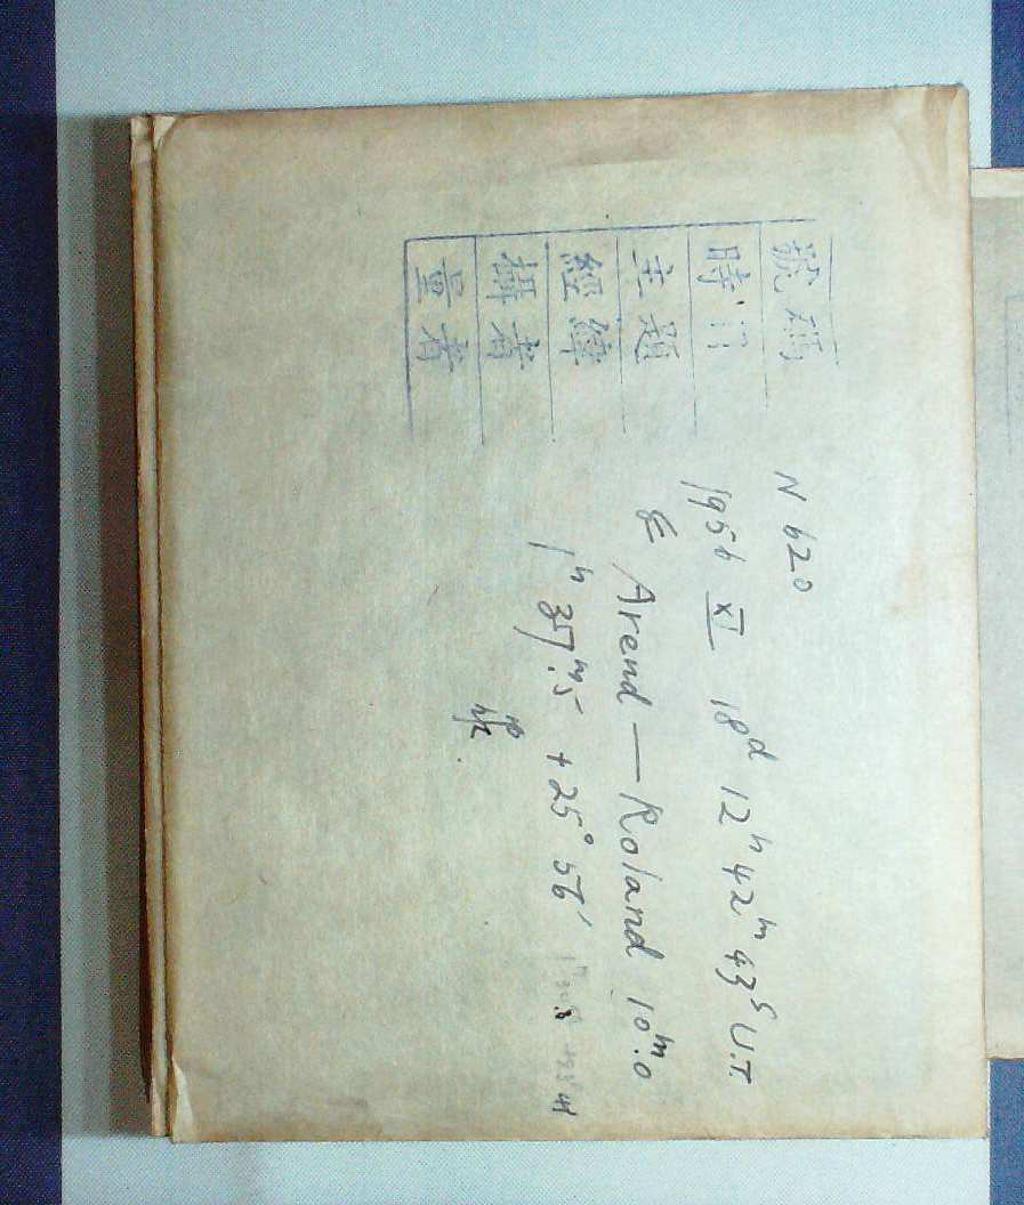 號碼 N 620
時日 1956 XI 18ᵈ 12ʰ 42ᵐ 43ˢ U.T.
主題 Arend — Roland 10ᵐ.0
經緯 1ʰ 37ᵐ.5 +25° 56′
攝者
量者